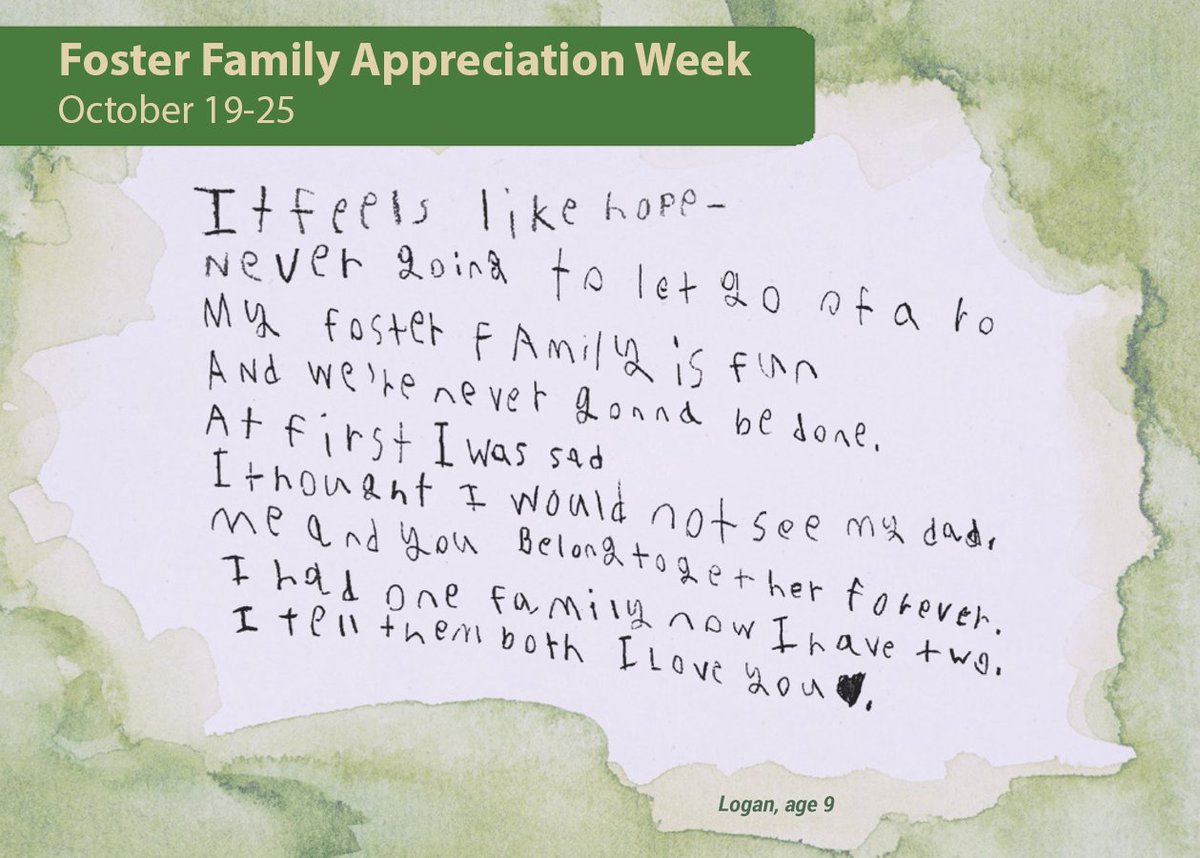 Foster Family Appreciation Week
October 19-25
It feels like hope-
Never going to let go of a ro
My foster fAmily is fun
And we're never gonna be done.
At first I was sad
I thought I would not see my dad.
me and you Belong together forever.
I had one family now I have two.
I tell them both I Love you♥.
Logan, age 9